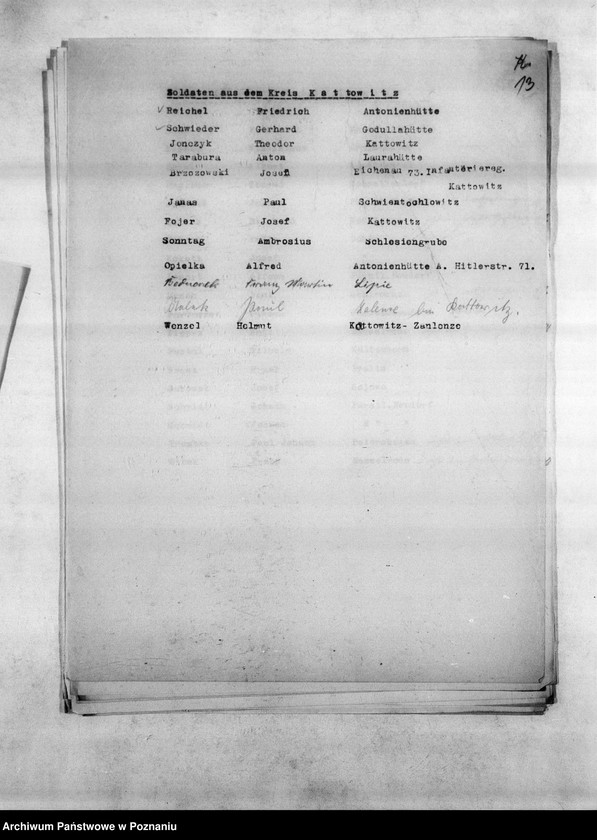 13
Soldaten aus dem Kreis K a t t o w i t z
Reichel Friedrich Antonienhütte
Schwieder Gerhard Godullahütte
Jonczyk Theodor Kattowitz
Tarabura Anton Laurahütte
Brzozowski Josef Eichenau 73.Infanteriereg.
Kattowitz
Janas Paul Schwientochlowitz
Fojer Josef Kattowitz
Sonntag Ambrosius Schlesiengrube
Opielka Alfred Antonienhütte A. Hitlerstr. 71.
Bednorek Franz Lipie
bei Kattowitz.
Wenzel Helmut Kattowitz- Zanlenze
Archiwum Państwowe w Poznaniu